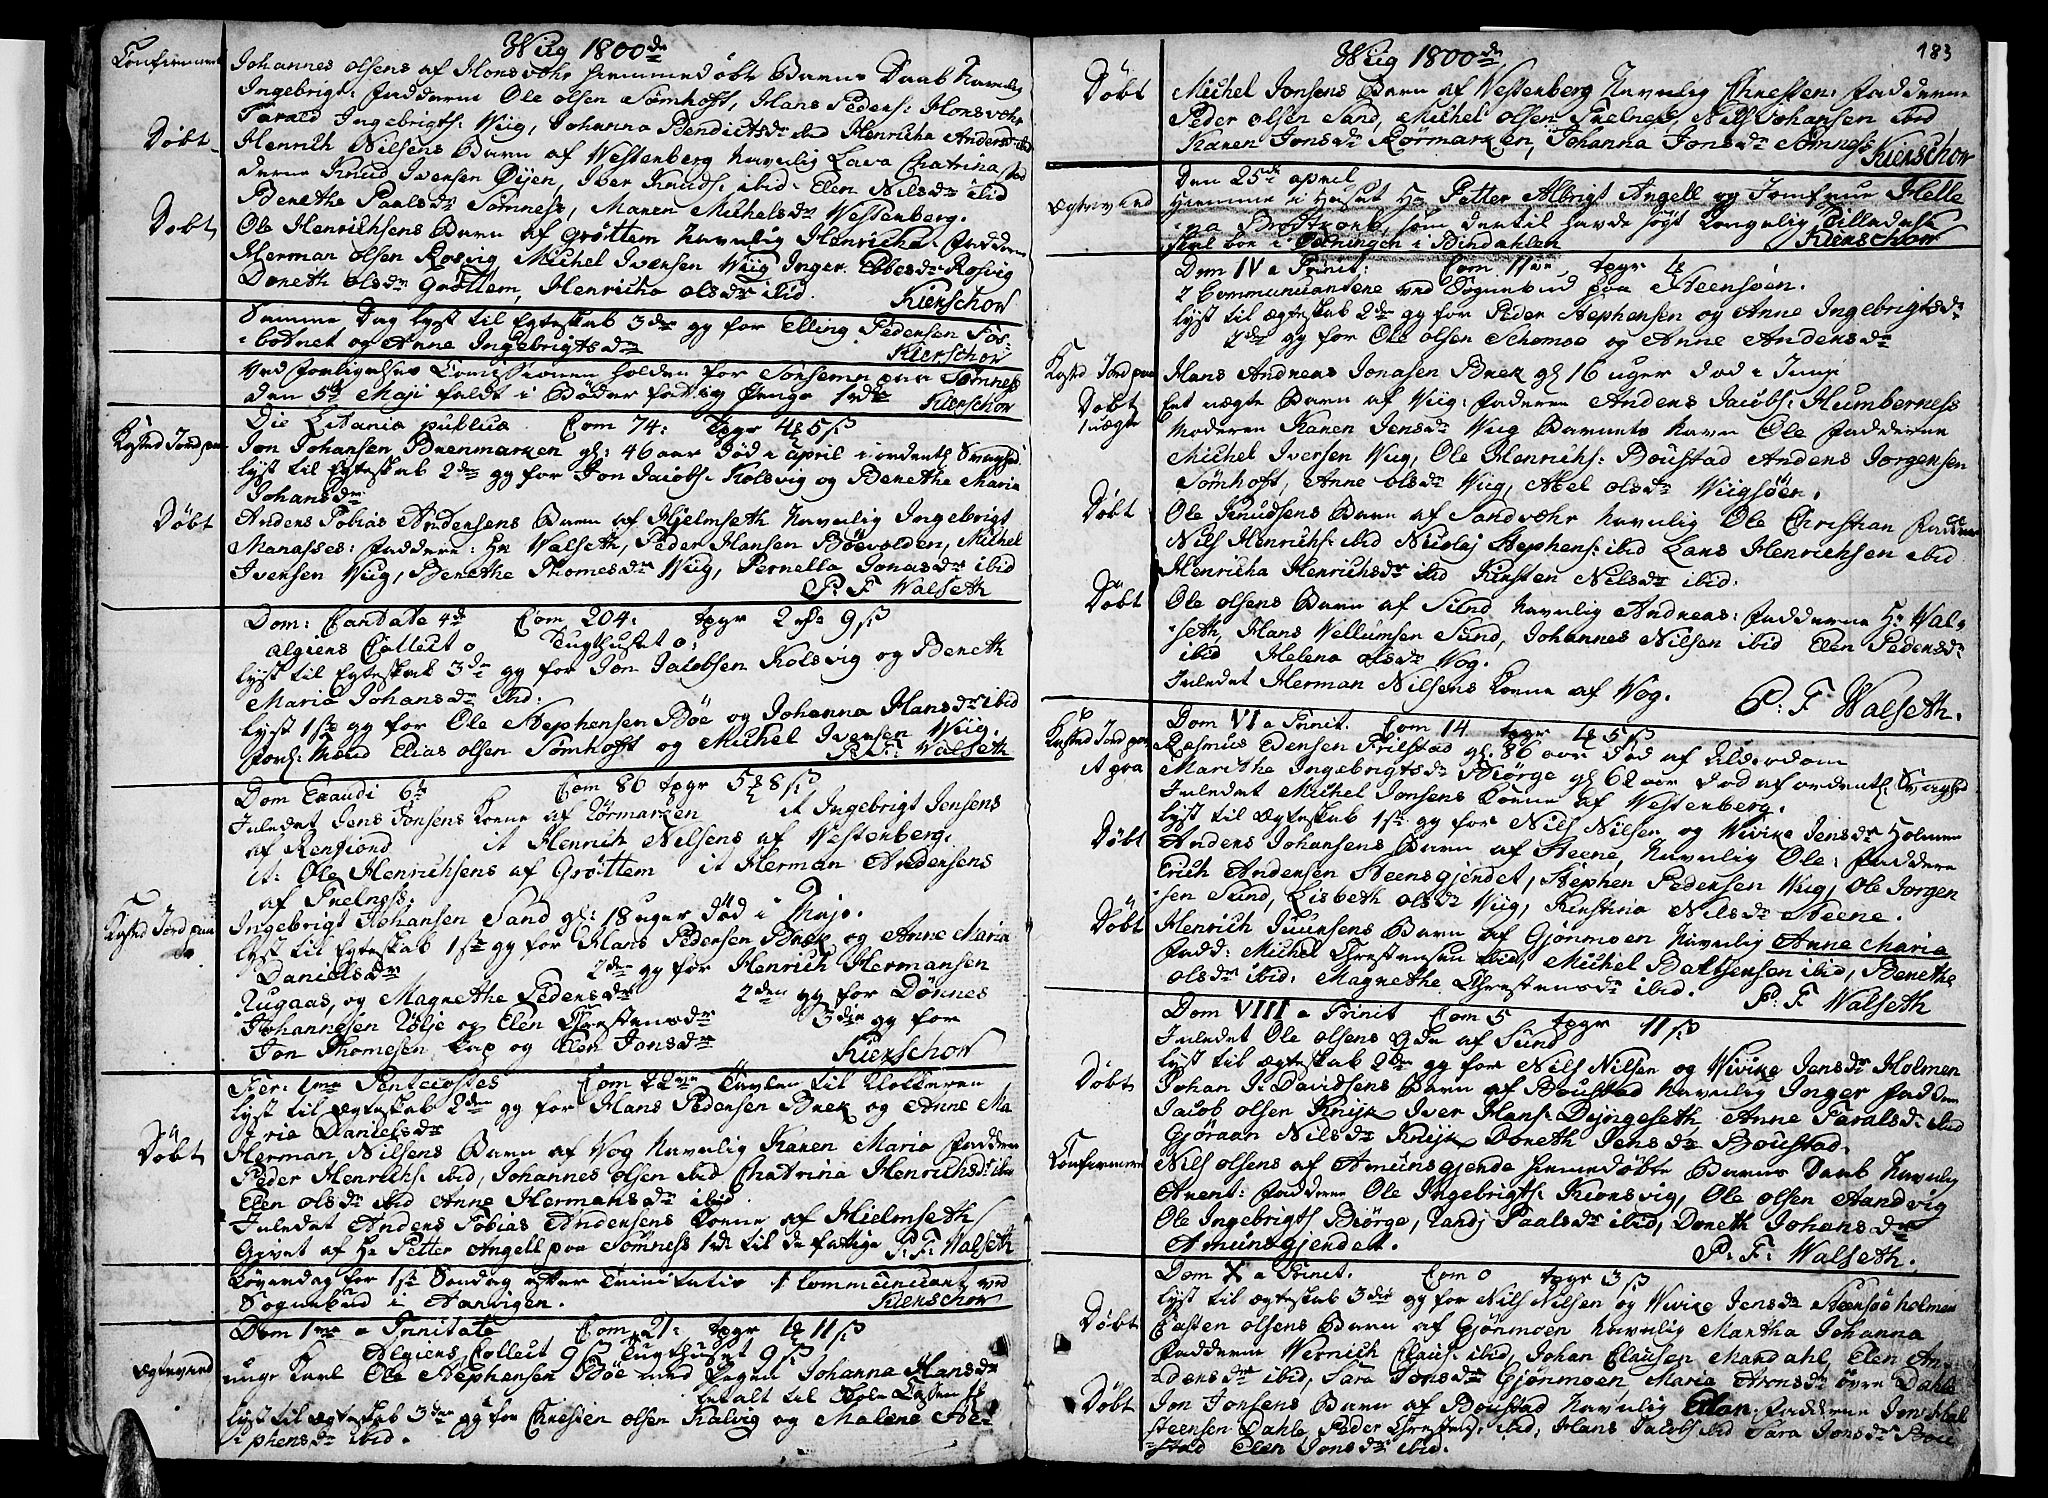 Wiig 1800de
Confirmeret
Johannes olsens af Honsvohr hiemmedøbt Barns Daab Navnlig
Ingebrigt: Fadderne Ole olsen Sømhoft, Hans Peders: Honsvohr
Tarald Ingebrigts: Wiig, Johanna Bendictsdr ibid Henricha Andersdr ibid
Døbt
Henrich Nilsens Barn af Vestenberg Navnlig Lava Chatrina
derne Knud Iversen Øyen, Iver Knuds: ibid Elen Nilsdr ibid
Benethe Paalsdr Sømness, Maren Michelsdr Vestenberg.
Døbt
Ole Henrichsens Barn af Grøttem Navnlig Henricha. Faddere
Herman olsen Rosvig Michel Iversen Wiig Inger Ebbesdr Rosvig
Doneth olsdr Grøttem, Henricha olsdr ibid.
Kierschow
Samme Dag lyst til Egteskab 3die gg for Elling Pedersen Fos-
botnet og Anne Ingebrigtsdr
Kierschow
Ved Forligelses Comissionen holden for Sørsemn paa Sømness
den 5te Maji faldt i Bøder fattig Penge 1rdr
Kierschow
Die Litania publica Com 74: Tpgr 4 5 ß
Kasted Jord paa
Jon Johansen Brenmarken gl: 46 aar Død i april i ordentl Svaghed
lyst til Egteskab 2den gg for Jon Jacobs: Kolsvig og Benethe Maria
Johansdr
Døbt
Anders Tobias Andersens Barn af Hjelmseth Navnlig Ingebrigt
Manasses: Faddere: Hr Walseth, Peder Hansen Bøevolden, Michel
Iversen Wiig, Benethe Thomesdr Wiig, Pernella Jonasdr ibid
P. F Walseth
Dom: Cantate 4de Com 204: tpgr 2 9 ß
algiens Collect 0 Tugthuset 0:
lyst til Egteskab 3die gg for Jon Jacobsen Kolsvig og Beneth
Maria Johansdr ibid:
lyst 1ste gg for Ole Stephensen Bøe og Johanna Hansdr ibid
Forl: Mænd Elias olsen Sømhofft og Michel Iversen Wiig.
P. F: Walseth
Dom Exaudi 6te Com 86 tpgr 5 8 ß
Inledet Jens Jonsens Kone af Rørmarken it Ingebrigt Jensens
af Rensiord it Henrich Nilsens af Vestenberg.
it: Ole Henrichsens af Grøttem it Herman Andersens
af Frelness.
Kasted Jord paa
Ingebrigt Johansen Sand gl: 18 uger Død i Majo.
do
lyst til Egteskab 1ste gg for Hans Pedersen Bræk og Anne Maria
Danielsdr 2den gg for Henrich Hermansen
Rugaas, og Magnethe Pedersdr 2den gg for Dønnes
Johannesen Rølje og Elen Chrestensdr 3die gg for
Jon Thomesen Kap og Elen Jonsdr
Kierschow
Fer: 1ma Pentecostes Com 22 Tavlen til Klokkeren
lyst til Ægteskab 2den gg for Hans Pedersen Bræk og Anne Ma
ria Danielsdr
Døbt
Herman Nilsens Barn af Vog Navnlig Karen Maria Fadderne
Peder Henrichs: ibid, Johannes olsen ibid Chatrina Henrichsdr ibid
Elen olsdr ibid Anne Hermansdr ibid
Inledet Anders Tobias Andersens Kone af Hielmseth
Givet af Hr Petter Angell paa Sømness 1rd til de fattige
P: F: Walseth
Løverdag for 1ste Søndag efter Trinitatis 1 Communicant ved
Sognebud i Aarvigen.
Kierschow
Dom 1ma a Trinitate Com 21: tpgr 1 11 ß
Algiens Collect 9 ß Tugthuset 9 ß
Ægteviid
unge Karl Ole Stephensen Bøe med Pigen Johanna Hansdr
betalt til Skole Casten
lyst til ægteskab 3die gg for Chresten olsen Kalvig og Malene Ste-
phensdr ibid.
Wiig 1800de
183
Døbt
Michel Jonsens Barn af Vestenberg Navnlig Chresten: Fadderne
Peder olsen Sand, Michel olsen Frelness, Nils Johansen ibid
Karen Jonsdr Rørmarken, Johanna Jonsdr Sømness
Kierschow
Den 25de april
Ægtevied
Hiemme i Huset Hr Petter Albrigt Angell og Jomfrue Helle
na Brodtkorb, som dertil havde søgt Kongelig Tilladelse
skal boe i Terningen i Bindahlen
Kierschow
Dom IV a Trinit: Com 11 tpgr
2 Communicantene ved Sognebud paa Steensøen.
lyst til ægteskab 2den gg for Peder Stephensen og Anne Ingebrigtsdr
2den gg for Ole olsen Schomoe og Anne Andersdr
Kasted Jord paa
Hans Andreas Jonasen Bræk gl 16 uger Død i Junj
Døbt
1 uægte
Eet uægte Barn af Wiig: Faderen Anders Jacobs: Humberness
Moderen Karen Jensdr Wiig Barnets Navn Ole Fadderne
Michel Iversen Wiig, Ole Henrichs: Boustad Anders Jørgensen
Sømhoft, Anne olsdr Wiig, Abel olsdr Wiigsøen.
Døbt
Ole Knudsens Barn af Sandvohr Navnlig Ole Christian Faddere
Nils Henrichs: ibid Nicolaj Stephens: ibid Lars Henrichsen ibid
Henricha Henrichsdr ibid Kirsten Nilsdr ibid.
Døbt
Ole olsens Barn af Sund Navnlig Andreas: Fadderne Hr Wal-
seth, Hans Vellumsen Sund, Johannes Nilsen ibid Elen Pedersdr
ibid Helena olsdr Vog.
Inledet Herman Nilsens Kone af Vog.
P: F Walseth.
Dom VI a Trinit. Com 14 tpgr 1 5 ß
Kasted Jord paa
Rasmus Edensen Frilstad gl: 86 aar Død af Alderdom
it paa
Marithe Ingebrigtsdr Biørge gl 62 aar Død af ordentl: Svaghed
Inledet Michel Jonsens Kone af Vestenberg.
lyst til Ægteskab 1ste gg for Nils Nilsen og Wivike Jensdr Holmen
Døbt
Anders Johansens Barn af Steene, Navnlig Ole: Faddere
Erich Andersen Steensgjendet, Stephen Pedersen Wiig, Ole Jorgen
sen Sund, Lisbeth olsdr Wiig, Kirstina Nilsdr Steene.
Døbt
Henrich Juursens Barn af Gjønmoen Navnlig Anne Maria
Fadd: Michel Chrestensen ibid, Michel Baltzersen ibid, Benethe
olsdr ibid: Magnethe Chrestensdr ibid.
P: F Walseth
Dom VIII a Trinit Com 5 tpgr 11 ß
Inledet Ole olsens Qde af Sund
lyst til ægteskab 2den gg for Nils Nilsen og Wivike Jensdr Holmen
Døbt
Johan J: Davidsens Barn af Boustad Navnlig Inger Fadderne
Jacob olsen Knijk Iver Hans: Dyngeseth Anne Taralsdr ibid
Gjøraan Nilsdr Knijk Doneth Jensdr Boustad
Confirmeret
Nils olsens af Amunsgjende hiemmedøbte Barns Daab Navnlig
Arent: Faddere Ole Ingebrigts: Kionsvig, Ole olsen Aandvig
Ole Ingebrigts Biørge, Randj Paalsdr ibid, Doneth Johansdr
Amunsgjendet.
P: F: Walseth.
Dom X a Trinit. Com 0 tpgr 3 ß
lyst til ægteskab 3die gg for Nils Nilsen og Wivike Jensdr Steensøeholmen
Døbt
Casten olsens Barn af Gjønmoen Navnlig Martha Johanna
Fadderne Vernich Claus: ibid, Johan Clausen Mardahl, Elen An-
dersdr ibid, Sara Jonsdr Gjønmoen Maria Aronsdr øvre Dahle
Døbt
Jon Jonsens Barn af Boustad Navnlig Elen. Fadderne Jon Hal
steensen Dahle, Peder Chrestens: ibid, Hans Jacobs ibid Sara Jonsdr Bou
stad Elen Jonsdr ibid.